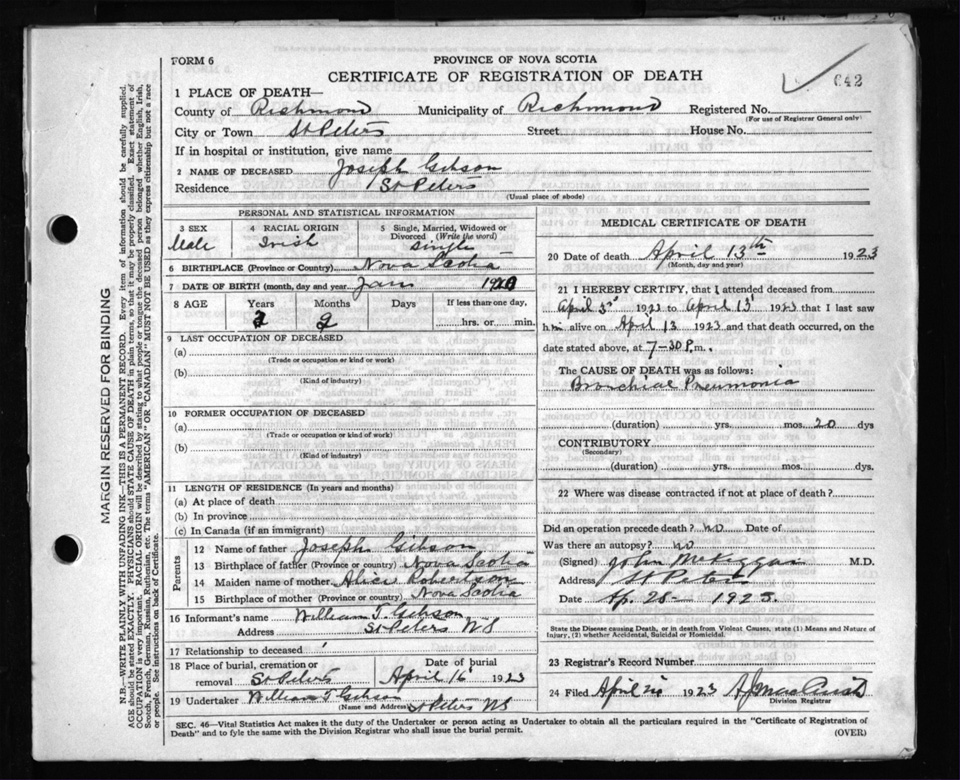 FORM 6
PROVINCE OF NOVA SCOTIA
CERTIFICATE OF REGISTRATION OF DEATH
642
1 PLACE OF DEATH—
County of Richmond Municipality of Richmond Registered No.
(For use of Registrar General only)
City or Town St Peters Street House No.
If in hospital or institution, give name
2 NAME OF DECEASED Joseph Gibson
Residence St Peters
(Usual place of abode)
PERSONAL AND STATISTICAL INFORMATION
3 SEX 4 RACIAL ORIGIN 5 Single, Married, Widowed or Divorced (Write the word)
Male Irish Single
6 BIRTHPLACE (Province or Country) Nova Scotia
7 DATE OF BIRTH (month, day and year) Jan 192
8 AGE Years Months Days If less than one day,
2 hrs. or min.
9 LAST OCCUPATION OF DECEASED
(a)
(Trade or occupation or kind or work)
(b)
(Kind of industry)
10 FORMER OCCUPATION OF DECEASED
(a)
(Trade or occupation or kind of work)
(b)
(Kind of industry)
11 LENGTH OF RESIDENCE (In years and months)
(a) At place of death
(b) In province
(c) In Canada (if an immigrant)
Parents
12 Name of father Joseph Gibson
13 Birthplace of father (Province or country) Nova Scotia
14 Maiden name of mother Alice Robertson
15 Birthplace of mother (Province or country) Nova Scotia
16 Informant's name William T. Gibson
Address St Peters NS
17 Relationship to deceased
18 Place of burial, cremation or removal St Peters
Date of burial April 16 1923
19 Undertaker William T Gibson
(Name and Address) St Peters NS
MEDICAL CERTIFICATE OF DEATH
20 Date of death April 13th 1923
(Month, day and year)
21 I HEREBY CERTIFY, that I attended deceased from
April 3d 1923 to April 13 1923 that I last saw
him alive on April 13 1923 and that death occurred, on the
date stated above, at 7-30 P.m.
The CAUSE OF DEATH was as follows:
Bronchial Pneumonia
(duration) yrs. mos. 20 dys
CONTRIBUTORY
(Secondary)
(duration) yrs. mos. dys.
22 Where was disease contracted if not at place of death?
Did an operation precede death? no Date of
Was there an autopsy? no
(Signed) John McKiggan M.D.
Address St Peters
Date Ap. 28 - 1923.
State the Disease causing Death, or in death from Violent Causes, state (1) Means and Nature of
Injury, (2) whether Accidental, Suicidal or Homicidal.
23 Registrar's Record Number
24 Filed April 1923
Division Registrar
SEC. 46—Vital Statistics Act makes it the duty of the Undertaker or person acting as Undertaker to obtain all the particulars required in the "Certificate of Registration of
Death" and to fyle the same with the Division Registrar who shall issue the burial permit. (OVER)
MARGIN RESERVED FOR BINDING
N.B.—WRITE PLAINLY WITH UNFADING INK—THIS IS A PERMANENT RECORD. Every item of information should be carefully supplied.
AGE should be stated EXACTLY. PHYSICIANS should STATE CAUSE OF DEATH in plain terms, so that it may be properly classified. Exact statement of
OCCUPATION is very important. RACIAL ORIGIN will be described by stating to what people or tongue the deceased person belonged, whether English, Irish,
Scotch, French, German, Russian, Ruthenian, etc. The terms "AMERICAN" OR "CANADIAN" MUST NOT BE USED as they express citizenship but not a race
or people. See instructions on back of Certificate.